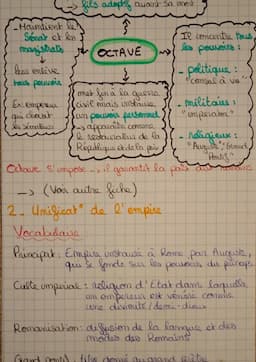 → fils adoptif avant sa mort
- Maintient le
Sénat et les
magistrats
mais enlève
tous pouvoirs
Ex: empereur
qui choisit
les sénateurs
OCTAVE
met fin à la guerre
civile mais instaure
un pouvoir personnel
→ apparaître comme
le restaurateur de la
République et de la paix
Il concentre tous
les pouvoirs :
- politique :
"consul à vie"
- militaire :
"imperator"
- religieux :
"Auguste"/Grand
Pontif"
Octave s'impose → il garantit la paix
→ (Voir autre fiche)
2 - Unificat° de l'empire
Vocabulaire
Principat : Empire instauré à Rome par Auguste,
qui se fonde sur les pouvoirs du princeps
Culte impérial : religion d'Etat dans laquelle
un empereur est vénéré comme
une divinité / demi-dieu
Romanisation : diffusion de la langue et des
modes des Romains
Grand pontif : titre donné au grand prêtre